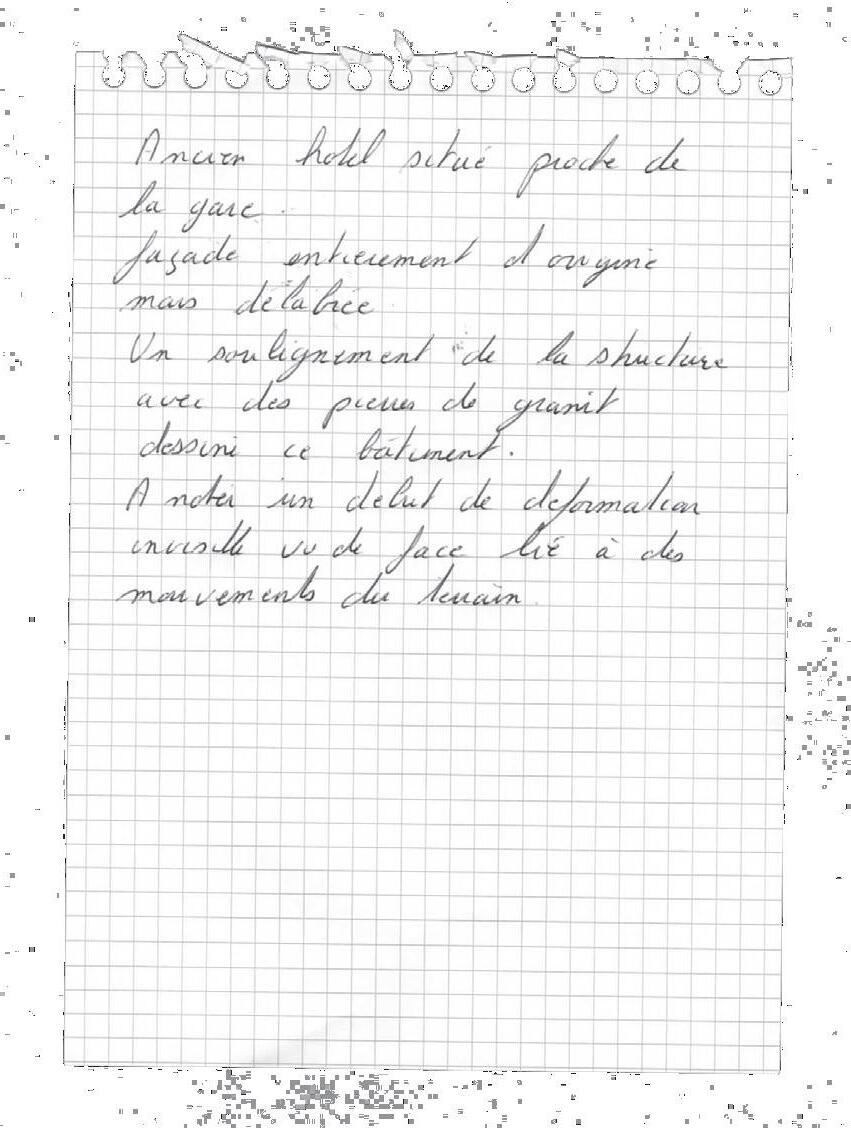 Ancien hotel situé proche de
la gare.
façade entierement d'origine
mais délabrée
Un soulignement de la structure
avec des pierres de granit
dessine ce bâtiment.
A noter un debut de deformation
invisible vu de face lié à des
mouvements du terrain.